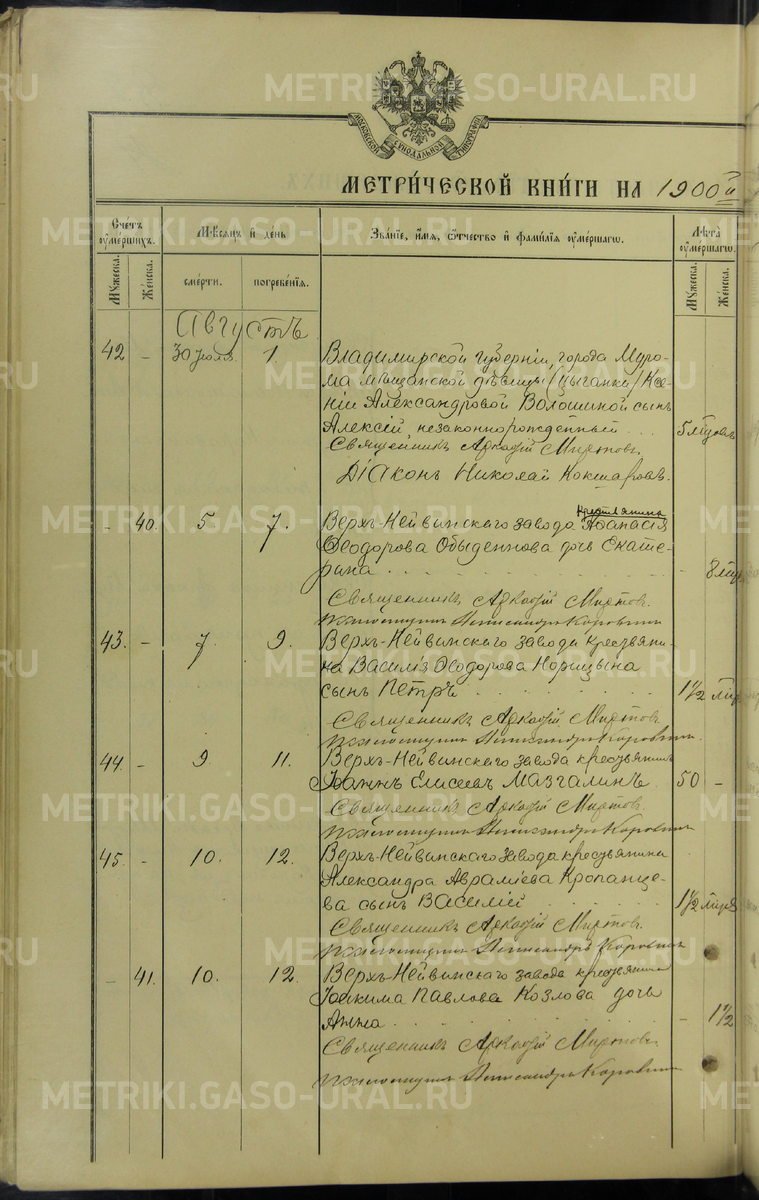 МОСКОВСКОЙ СѴНОДАЛЬНОЙ ТИПОГРАФІИ
МЕТРИ́ЧЕСКОЙ КНИ́ГИ НА 1900й
Сче́тъ оуме́ршихъ.
Мѣсяцъ и день
Зва́нїе, и́мя, ѻ́тчество и фами́лїя оуме́ршагѡ.
Лѣта оуме́ршагѡ.
Му́жеска.
Же́нска.
сме́рти.
погребе́нїя.
Му́жеска.
Же́нска.
Августъ
42 - 30 Іюля 1. Владимирской губерніи, города Муро-
ма мѣщанской дѣвицы /цыганки/ Ксе-
ніи Александровой Волошиной сынъ
Алексій незаконнорожденный . . . 5 мѣсяцевъ
Священникъ Аркадій Миртовъ.
Діаконъ Николай Кокшаровъ.
- 40. 5 7. Верхъ-Нейвинскаго завода крестьянина Аѳанасія
Ѳеодорова Обыденнова дочь Екате-
рина . . . - 8
Священникъ Аркадій Миртовъ.
Псаломщикъ Александръ Коровинъ
43. - 7 9. Верхъ-Нейвинскаго завода крестьяни-
на Василія Ѳеодорова Норицына
сынъ Петръ . . . 1½
Священникъ Аркадій Миртовъ
Псаломщикъ Александръ Коровинъ.
44. - 9. 11. Верхъ-Нейвинскаго завода крестьянинъ
Іоаннъ Елисеевъ Мазгалинъ. 50 -
Священникъ Аркадій Миртовъ.
Псаломщикъ Александръ Коровинъ
45. - 10. 12. Верхъ-Нейвинскаго завода крестьянина
Александра Авраміева Кропанце-
ва сынъ Василій . . . 1½
Священникъ Аркадій Миртовъ.
Псаломщикъ Александръ Коровинъ
- 41. 10. 12. Верхъ-Нейвинскаго завода крестьянина
Іоакима Павлова Козлова дочь
Анна . . . - 1½
Священникъ Аркадій Миртовъ.
Псаломщикъ Александръ Коровинъ
METRIKI.GASO-URAL.RU